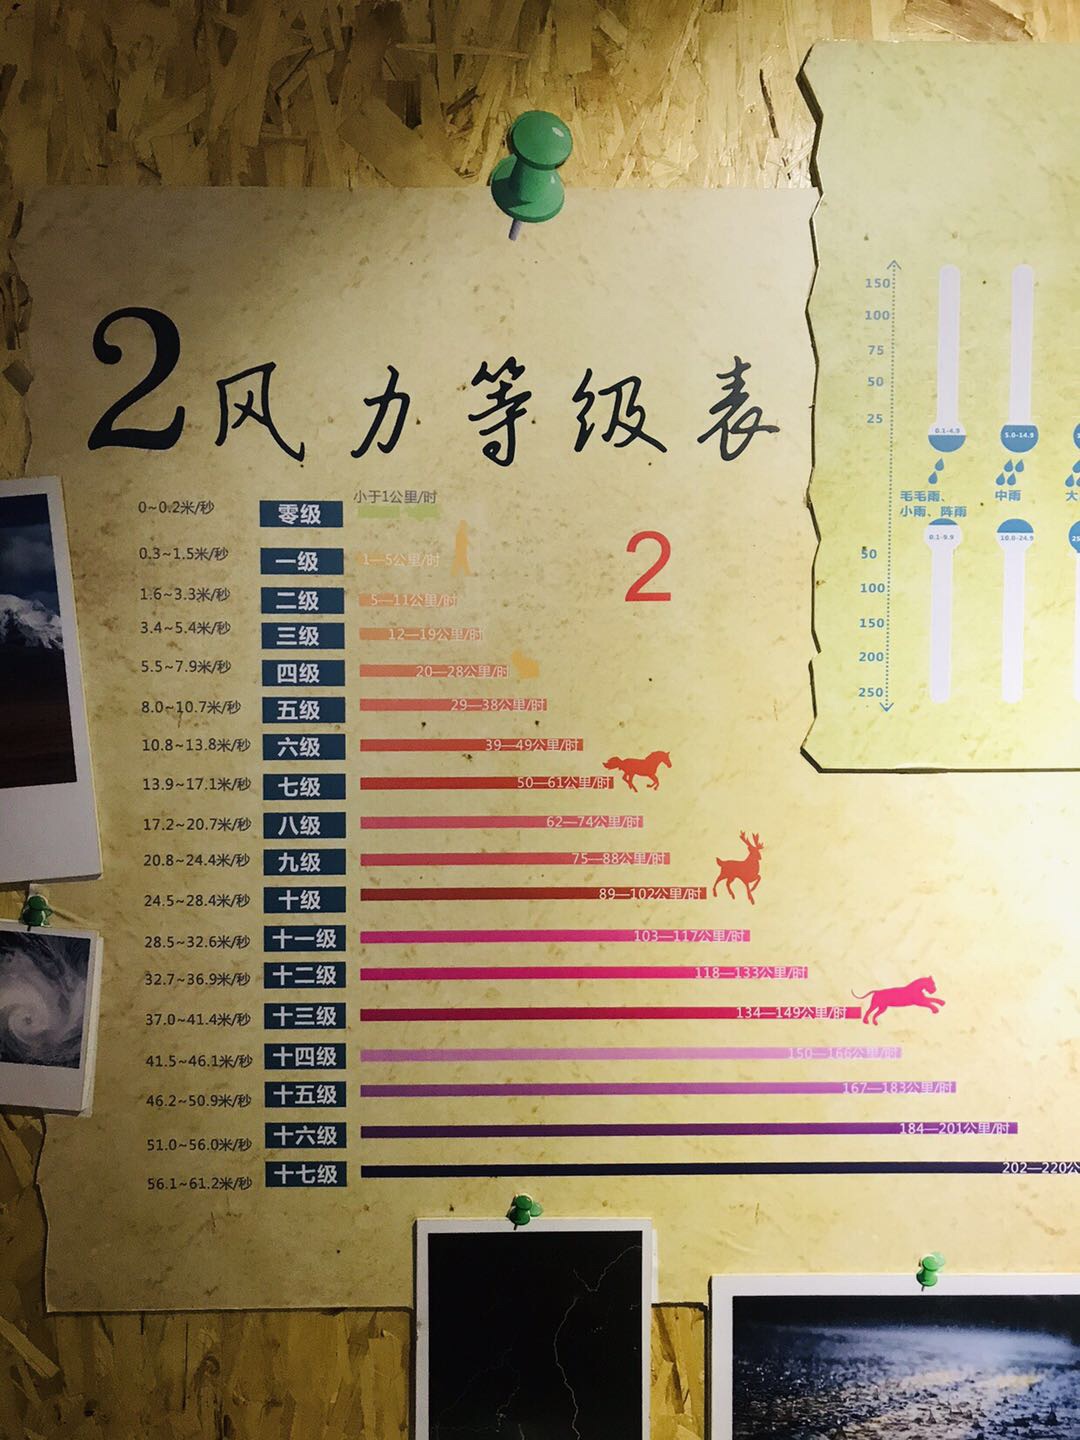 2风力等级表
2
0~0.2米/秒 零级 小于1公里/时
0.3~1.5米/秒 一级 1—5公里/时
1.6~3.3米/秒 二级 5—11公里/时
3.4~5.4米/秒 三级 12—19公里/时
5.5~7.9米/秒 四级 20—28公里/时
8.0~10.7米/秒 五级 29—38公里/时
10.8~13.8米/秒 六级 39—49公里/时
13.9~17.1米/秒 七级 50—61公里/时
17.2~20.7米/秒 八级 62—74公里/时
20.8~24.4米/秒 九级 75—88公里/时
24.5~28.4米/秒 十级 89—102公里/时
28.5~32.6米/秒 十一级 103—117公里/时
32.7~36.9米/秒 十二级 118—133公里/时
37.0~41.4米/秒 十三级 134—149公里/时
41.5~46.1米/秒 十四级 150—166公里/时
46.2~50.9米/秒 十五级 167—183公里/时
51.0~56.0米/秒 十六级 184—201公里/时
56.1~61.2米/秒 十七级 202—220公
150
100
75
50
25
0.1-4.9 5.0-14.9
毛毛雨、 中雨 大
小雨、阵雨
0.1-9.9 10.0-24.9 25
50
100
150
200
250